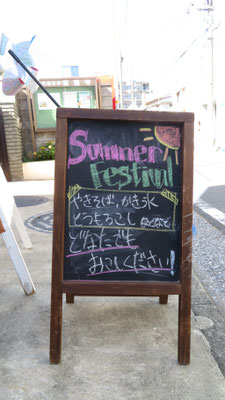 Summer
Festival
やきそば、かき氷
とうもろこし などなど
どなたでも
おこしください!